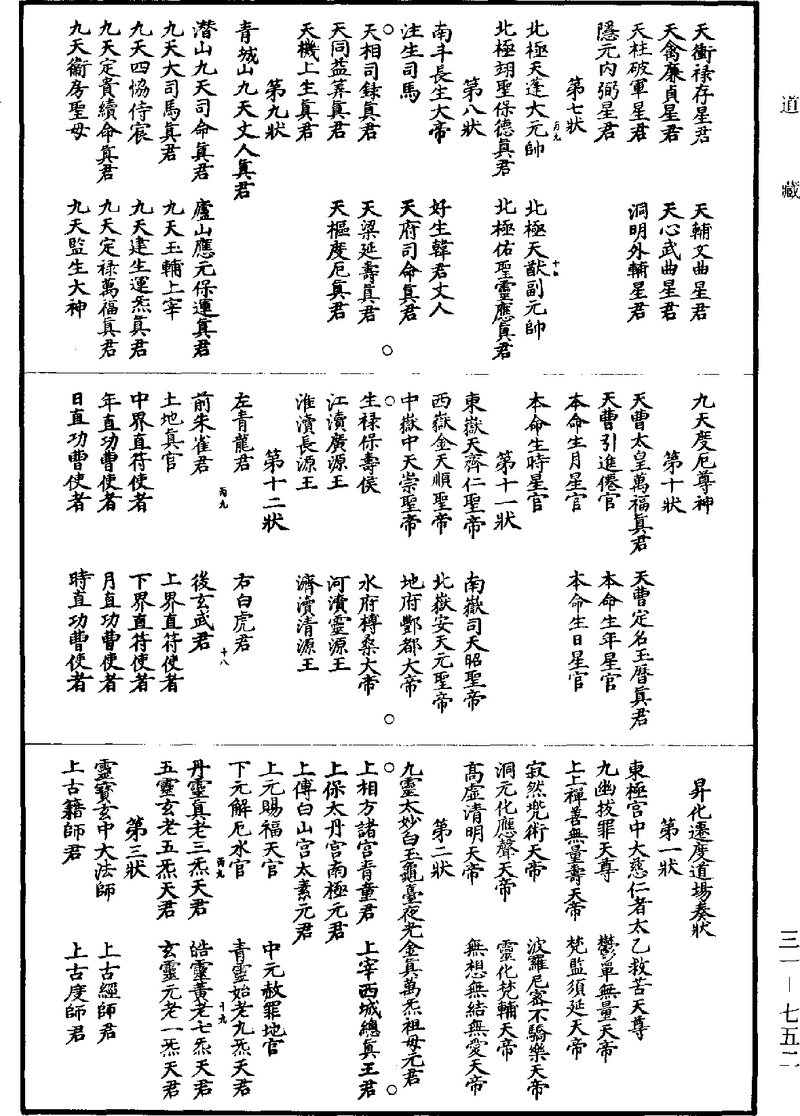 道藏
天衝祿存星君　天輔文曲星君
天禽廉貞星君　天心武曲星君
天柱破軍星君　洞明外輔星君
隱元内弼星君
第七狀
丙九　十七
北極天蓬大元帥　北極天猷副元帥
北極翊聖保德真君　北極佑聖靈應真君
第八狀
南斗長生大帝　好生韓君丈人
注生司馬　天府司命真君
天相司錄真君　天梁延壽真君
天同益筭真君　天樞度厄真君
天機上生真君
第九狀
青城山九天丈人真君
潛山九天司命真君　廬山應元保運真君
九天大司馬真君　九天玉輔上宰
九天四協侍宸　九天建生運炁真君
九天定貴續命真君　九天定祿萬福真君
九天衛房聖母　九天監生大神
九天度厄尊神
第十狀
天曹太皇萬福真君　天曹定名玉曆真君
天曹引進僊官　本命生年星官
本命生月星官　本命生日星官
本命生時星官
第十一狀
東嶽天齊仁聖帝　南嶽司天昭聖帝
西嶽金天順聖帝　北嶽安天元聖帝
中嶽中天崇聖帝　地府酆都大帝
生祿保壽侯　水府榑桑大帝
江瀆廣源王　河瀆靈源王
淮瀆長源王　濟瀆清源王
第十二狀
左青龍君　右白虎君
丙九　十八
前朱雀君　後玄武君
土地真官　上界直符使者
中界直符使者　下界直符使者
年直功曹使者　月直功曹使者
日直功曹使者　時直功曹使者
昇化遷度道場奏狀
第一狀
東極宮中大慈仁者太乙救苦天尊
九幽拔罪天尊　鬱單無量天帝
上上禪善無量壽天帝　梵監須延天帝
寂然兜術天帝　波羅尼蜜不驕樂天帝
洞元化應聲天帝　靈化梵輔天帝
高虛清明天帝　無想無結無愛天帝
第二狀
九靈太妙白玉龜臺夜光金真萬炁祖母元君
上相方諸宮青童君　上宰西城總真王君
上保太丹宮南極元君
上傅白山宮太素元君
上元賜福天官　中元赦罪地官
下元解厄水官　青靈始老九炁天君
丙九　十九
丹靈真老三炁天君　皓靈黃老七炁天君
五靈玄老五炁天君　玄靈元老一炁天君
第三狀
靈寶玄中大法師　上古經師君
上古籍師君　上古度師君
三一—七五二